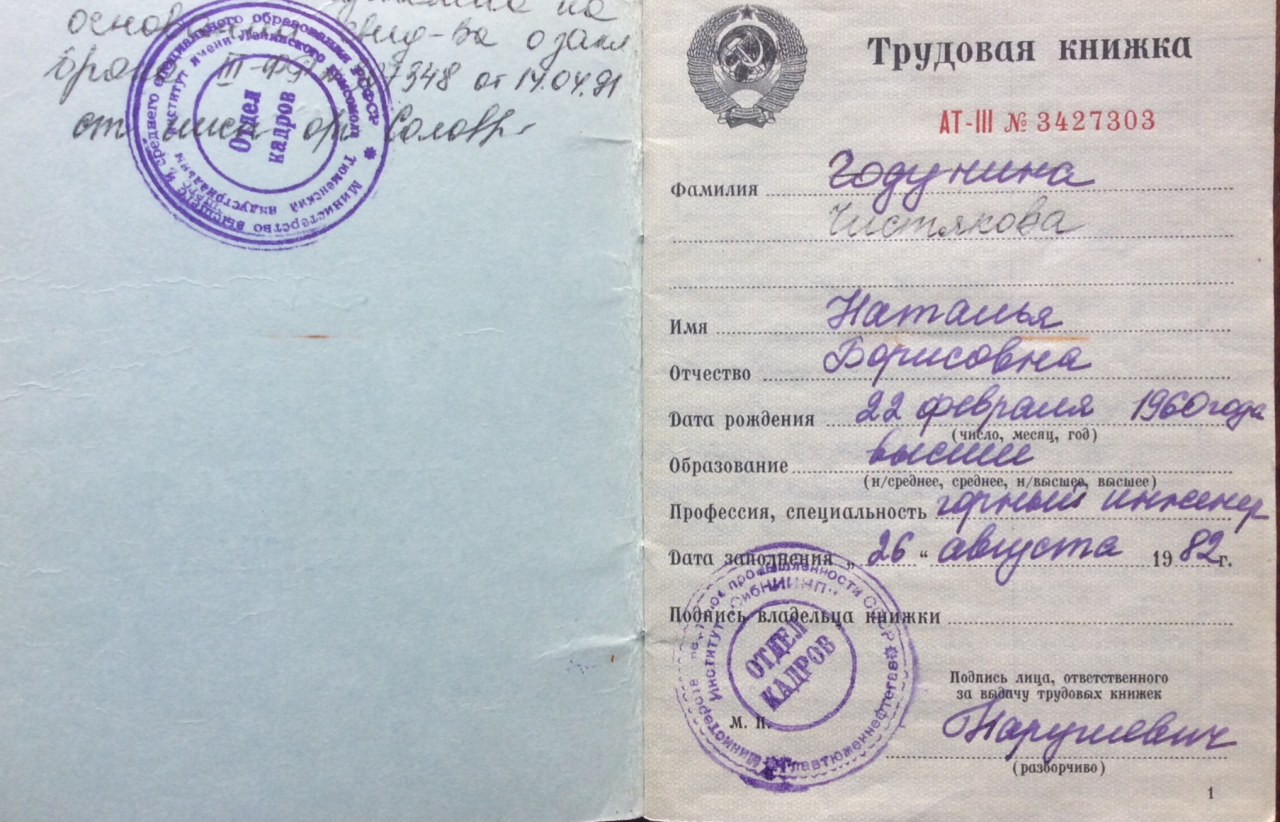 на
основании свид-ва о закл
брака III-ФР № 327348 от 14.04.81
ст инсп ор Солов
Министерство высшего и среднего специального образования РСФСР
Тюменский индустриальный институт имени Ленинского комсомола
Отдел
кадров
Трудовая книжка
АТ-III № 3427303
Фамилия Годунина
Чистякова
Имя Наталья
Отчество Борисовна
Дата рождения 22 февраля 1960 года
(число, месяц, год)
Образование высшее
(н/среднее, среднее, н/высшее, высшее)
Профессия, специальность горный инженер
Дата заполнения „ 26 “ августа 19 82 г.
Подпись владельца книжки
Министерство нефтяной промышленности СССР
Главтюменнефтегаз
Институт „СибНИИНП"
ОТДЕЛ
КАДРОВ
М. П.
Подпись лица, ответственного
за выдачу трудовых книжек
Нарушевич
(разборчиво)
1